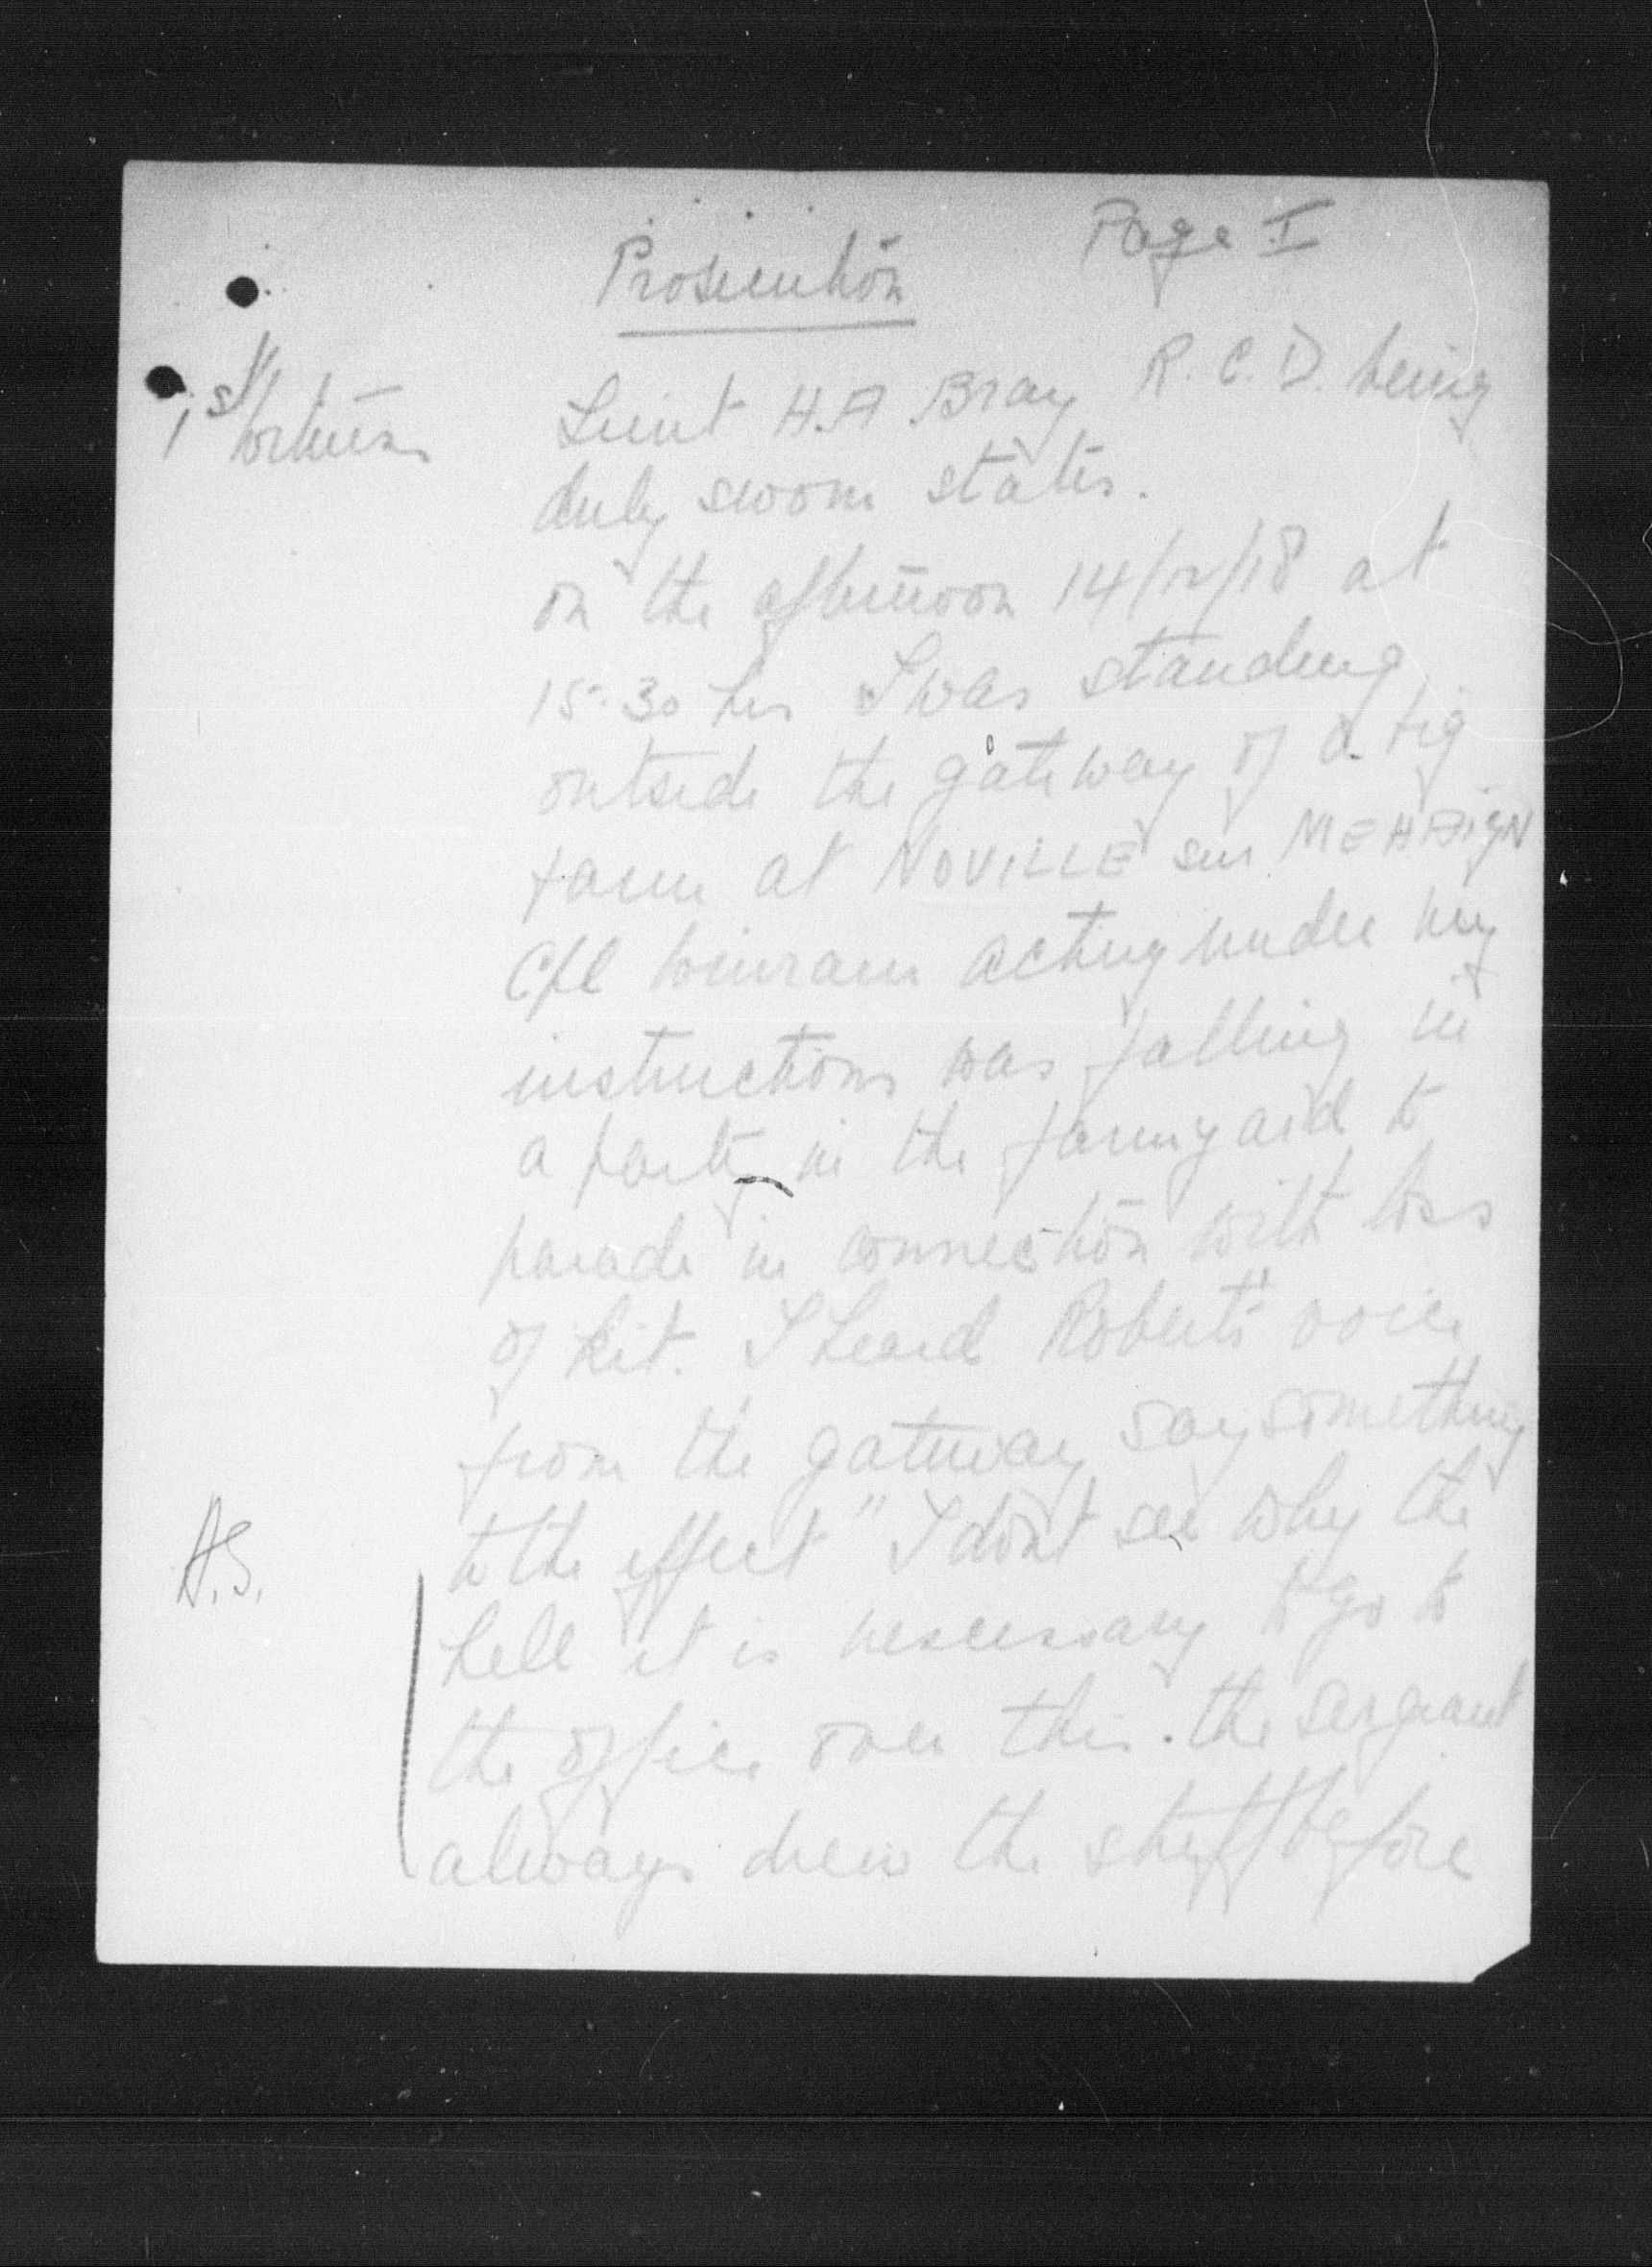 Page I
Prosecution
1st Witness
Lieut H.A. Bray R.C.D. being
duly sworn states.
on the afternoon 14/12/18 at
15.30 hrs I was standing
outside the gateway of a big
farm at NOVILLE sur MEHAIGN
Cpl acting under my
instructions was falling in
a party in the farmyard to
parade in connection with loss
of kit. I heard Roberts' voice
from the gateway say something
to the effect "I don't see why the
hell it is nescessary to go to
the office over this. the sergeant
always drew the stuff before
A.S.